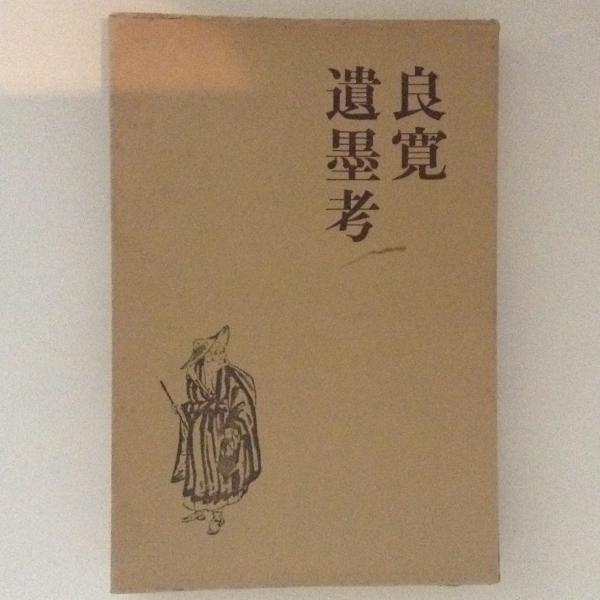 良寛
遺墨考